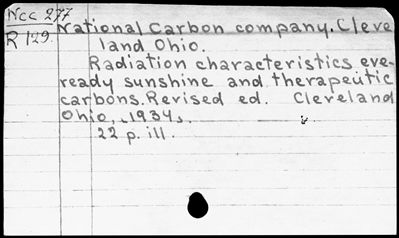 Ncc 277
R 129.
National Carbon company. Cleve
land Ohio.
Radiation characteristics eve-
ready sunshine and therapeutic
carbons. Revised ed. Cleveland
Ohio, 1934.
22 p. ill.